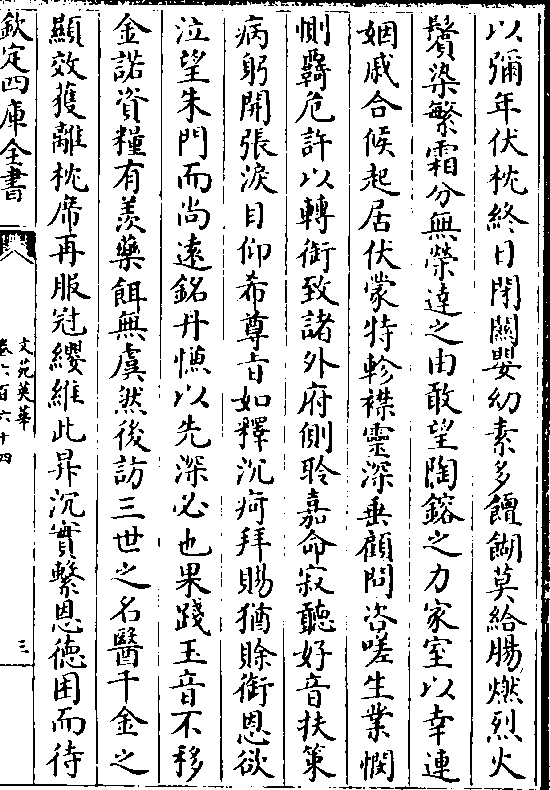 以彌年伏枕終日閉關嬰幼素多饘餬莫給腸燃烈火
鬢染繁霜分無榮達之由敢望陶鎔之力家室以幸連
姻戚合候起居伏蒙特軫襟靈深垂顧問咨嗟生業憫
惻羇危許以轉銜致諸外府側聆嘉命寂聽好音扶策
病躬開張淚目仰希尊旨如釋沉疴拜賜猶賒銜恩欲
泣望朱門而尚遠銘丹慊以先深必也果踐玉音不移
金諾資糧有羡藥餌無虞然後訪三世之名醫千金之
顯效獲離枕席再服冠纓維此昇沉實繫恩徳困而待
欽定四庫全書
文苑英華
卷六百六十四
三